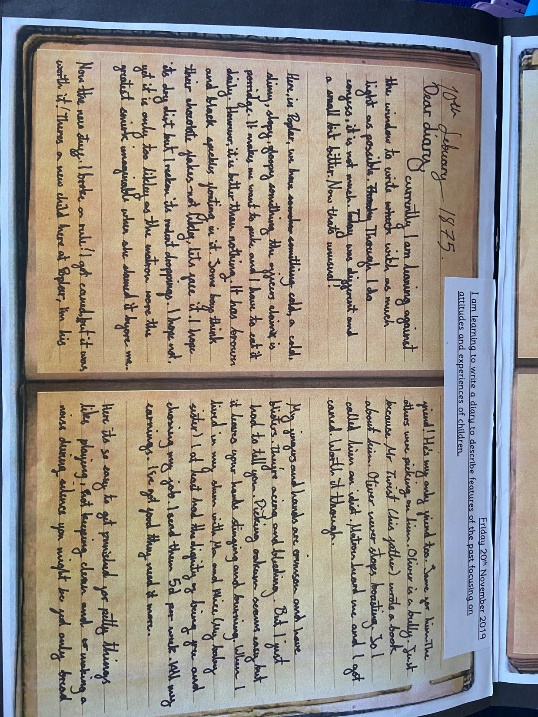 Friday 20th November 2019
I am learning to write a diary to describe features of the past focusing on
attitudes and experiences of children.
10th February - 1875.
Dear diary,
Currently I am leaning against
the window to write with as much
light as possible. Though I do
confess, it is not much. Today was different and
a small bit better. Now that's unusual!
Here, in Poplar, we have something cold, a cold,
slimy, sloppy something the officers claim is
porridge. It makes me want to puke and I have to eat it
daily. However, it is better than nothing. It has brown
and black speckles floating in it. Some boys think
their chocolate flakes - not likely. Let's face it I hope
its dry dirt but I reckon its rodent droppings. I hope not,
yet it is only too likely as the matron wore the
smirk imaginable when she slammed it before me.
Now the new thing. I broke a rule! I got caned, but it was
worth it! There's a new child here at Poplar, I'm his
friend! He's my only friend too. Same for him. The
others were picking on him. Oliver is a bully. Just
because Mr Twist (his father) wrote a book
about him. Oliver never stops boasting. So I
called him an idiot, Matron heard me and I got
caned. Worth it though.
My fingers and hands are crimson and have
blisters. They're and bleeding. But I just
had to tell you. Picking oakum seems easy but
it leaves your hands stinging and burning. When I
lived in my slum with Ma and Alice (my baby
sister) I at least had the dignity of being free and
my job. I send them 5d per week. All my
earnings. I've got food they need it more.
Here its so easy to get punished for petty things
like playing, not keeping clean and or making a
noise during silence you might be fed only bread